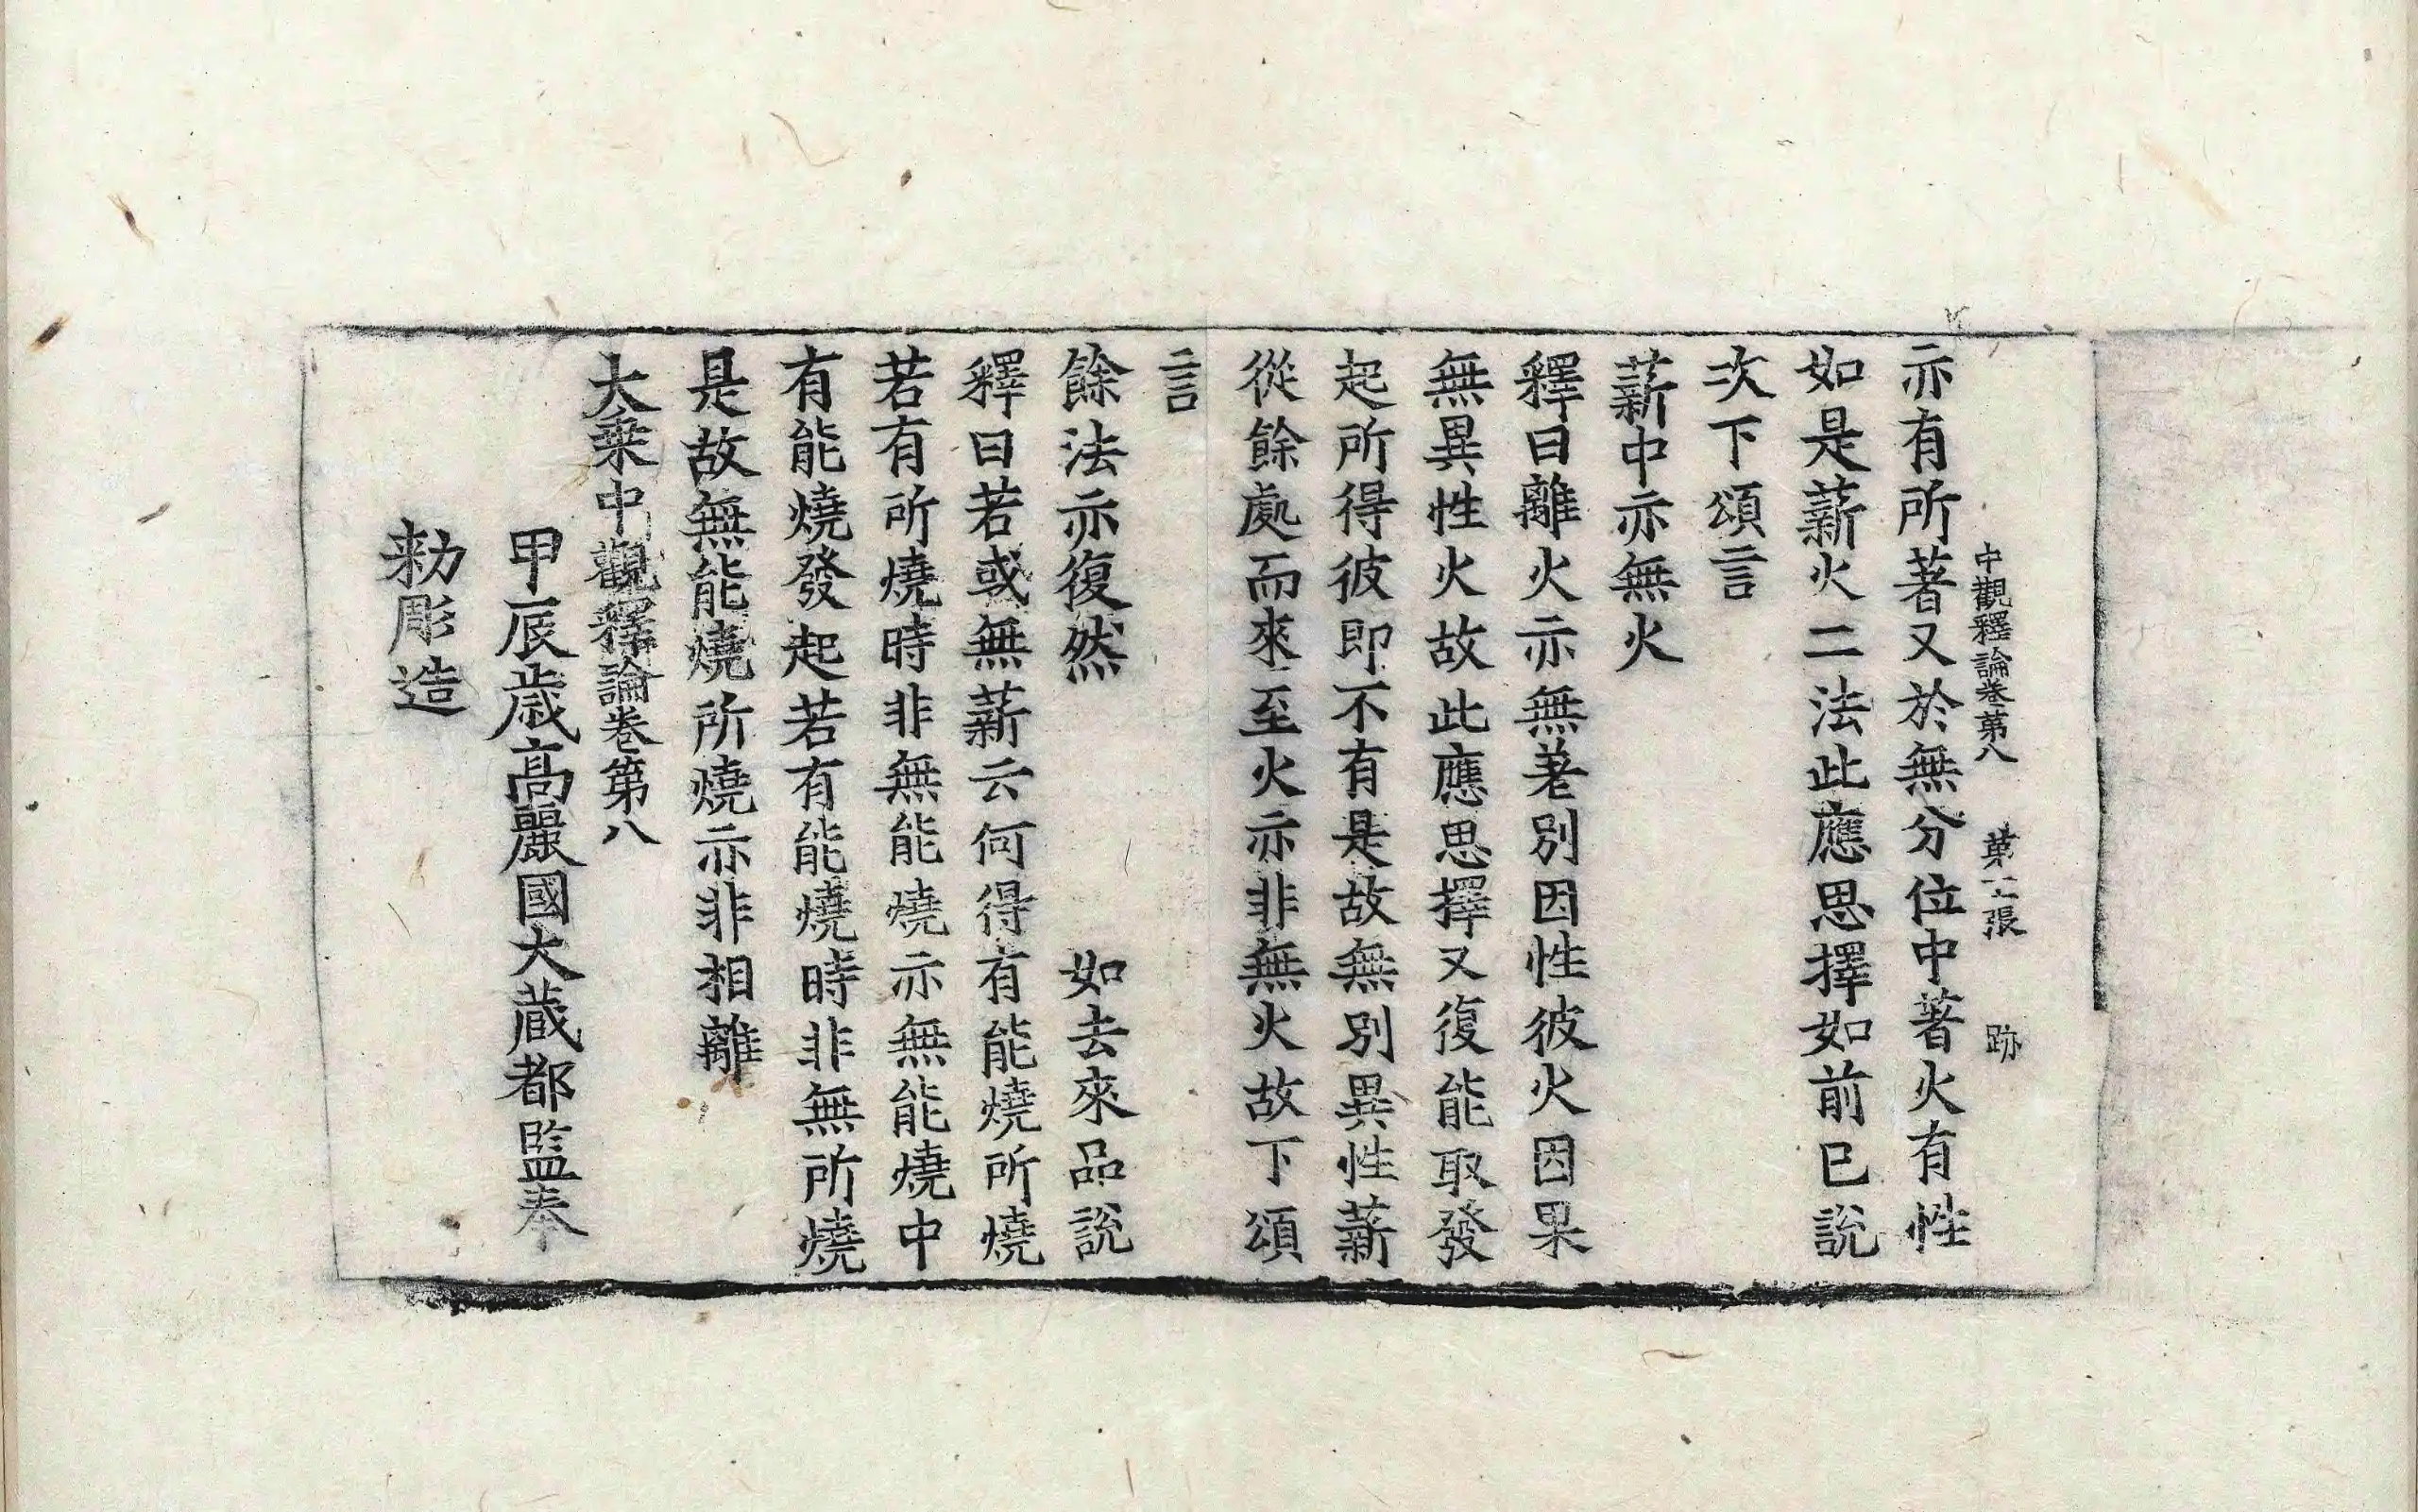 中觀釋論卷第八 第 張 跡
亦有所著又於無分位中著火有性
如是薪火二法此應思擇如前已說
次下頌言
薪中亦無火
釋曰離火亦無差別因性彼火因果
無異性火故此應思擇又復能取發
起所得彼即不有是故無別異性薪
從餘處而來至火亦非無火故下頌
言
餘法亦復然 如去來品說
釋曰若或無薪云何得有能燒所燒
若有所燒時非無能燒亦無能燒中
有能燒發起若有能燒時非無所燒
是故無能燒所燒亦非相離
大乗中觀釋論卷第八
甲辰歲高麗國大藏都監奉
勅彫造